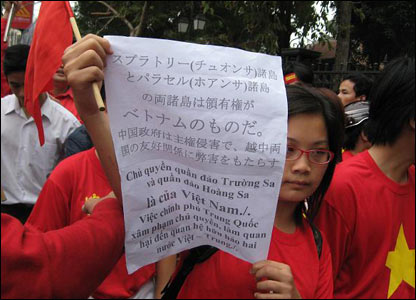 スプラトリー(チュオンサ)諸島
とパラセル(ホアンサ)諸島
の両諸島は領有権が
ベトナムのものだ。
中国政府は主権侵害で、越中両
国の友好関係に弊害をもたらす
Chủ quyền quần đảo Trường Sa
và quần đảo Hoàng Sa
là của Việt Nam./.
Việc chính phủ Trung Quốc
xâm phạm chủ quyền, làm quan
hại đến quan hệ hữu hảo hai
nước Việt – Trung./.